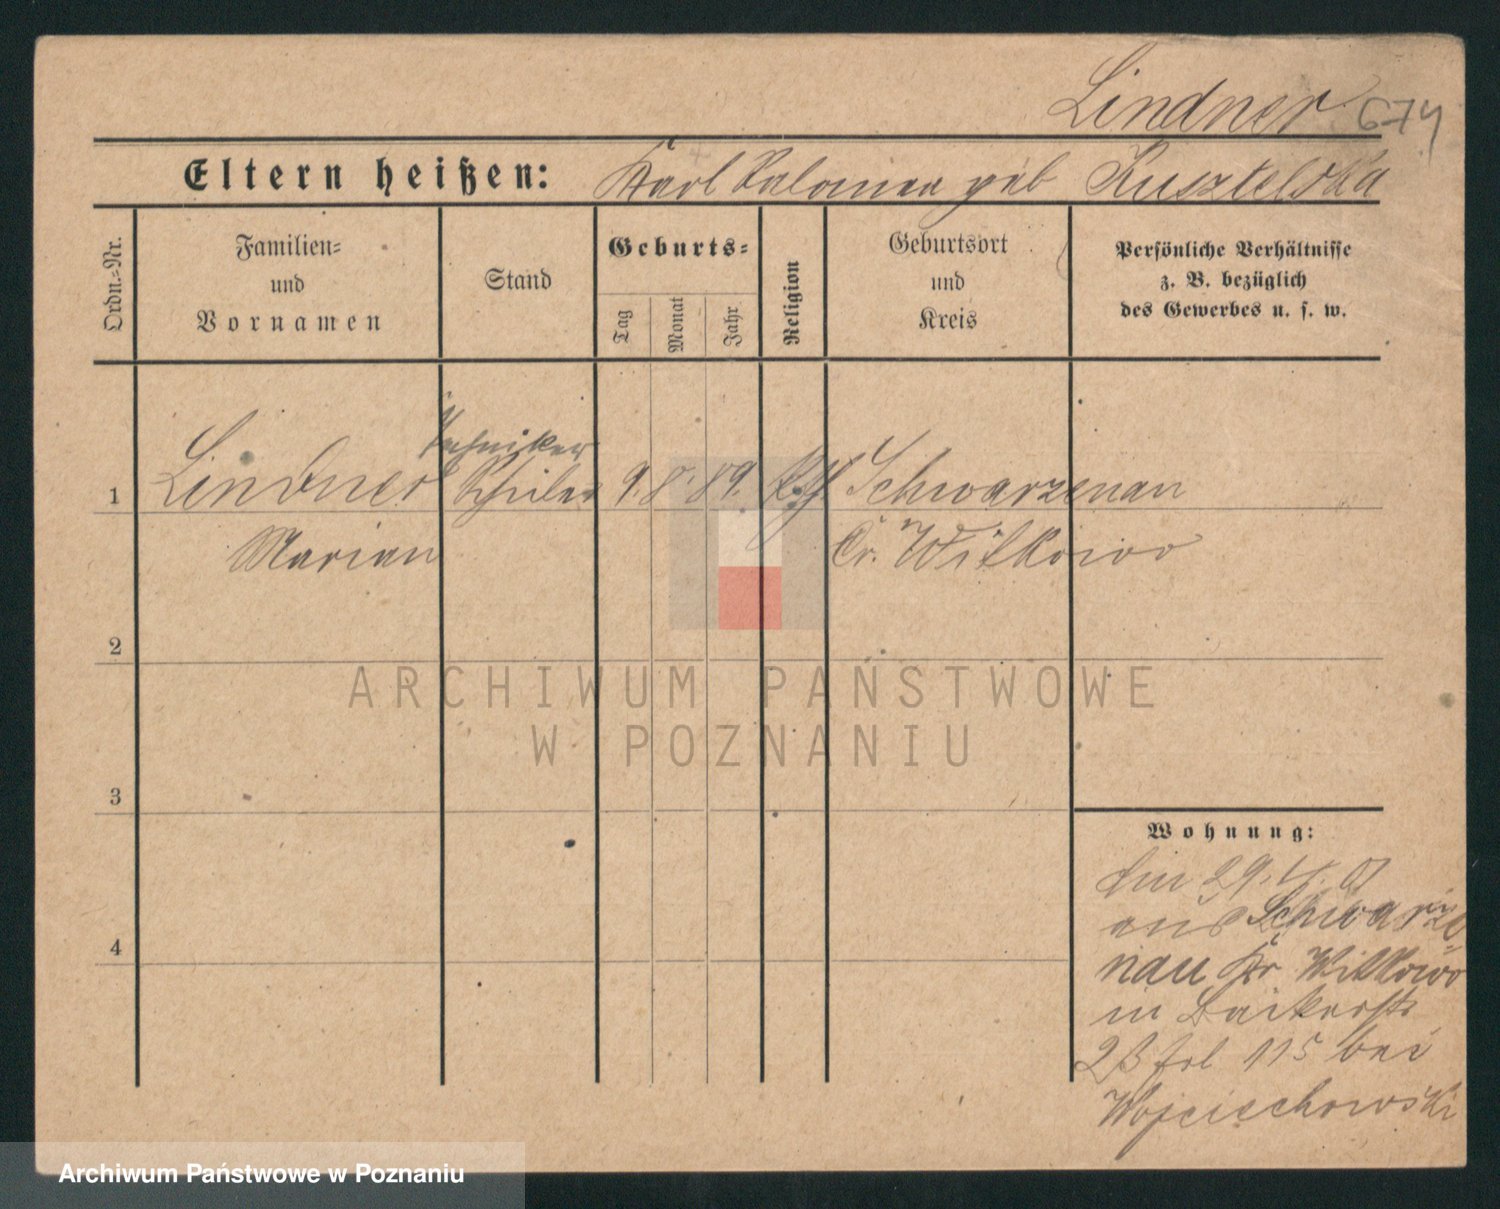 Lindner 674
Eltern heißen: Karl Salomea geb Kusztelska
Ordn.-Nr.
Familien-
und
Vornamen
Stand
Geburts-
Tag
Monat
Jahr
Religion
Geburtsort
und
Kreis
Persönliche Verhältnisse
z. B. bezüglich
des Gewerbes u. s. w.
Techniker
1 Lindner Schüler 9. 8. 89. Kth Schwarzenau
Marian Kr. Witkowo
2
ARCHIWUM PAŃSTWOWE
W POZNANIU
3
4
Wohnung:
29. 4. 01
aus Schwarze-
nau Kr Witkowo
in Bäckerstr
115 bei
Wojciechowski
Archiwum Państwowe w Poznaniu